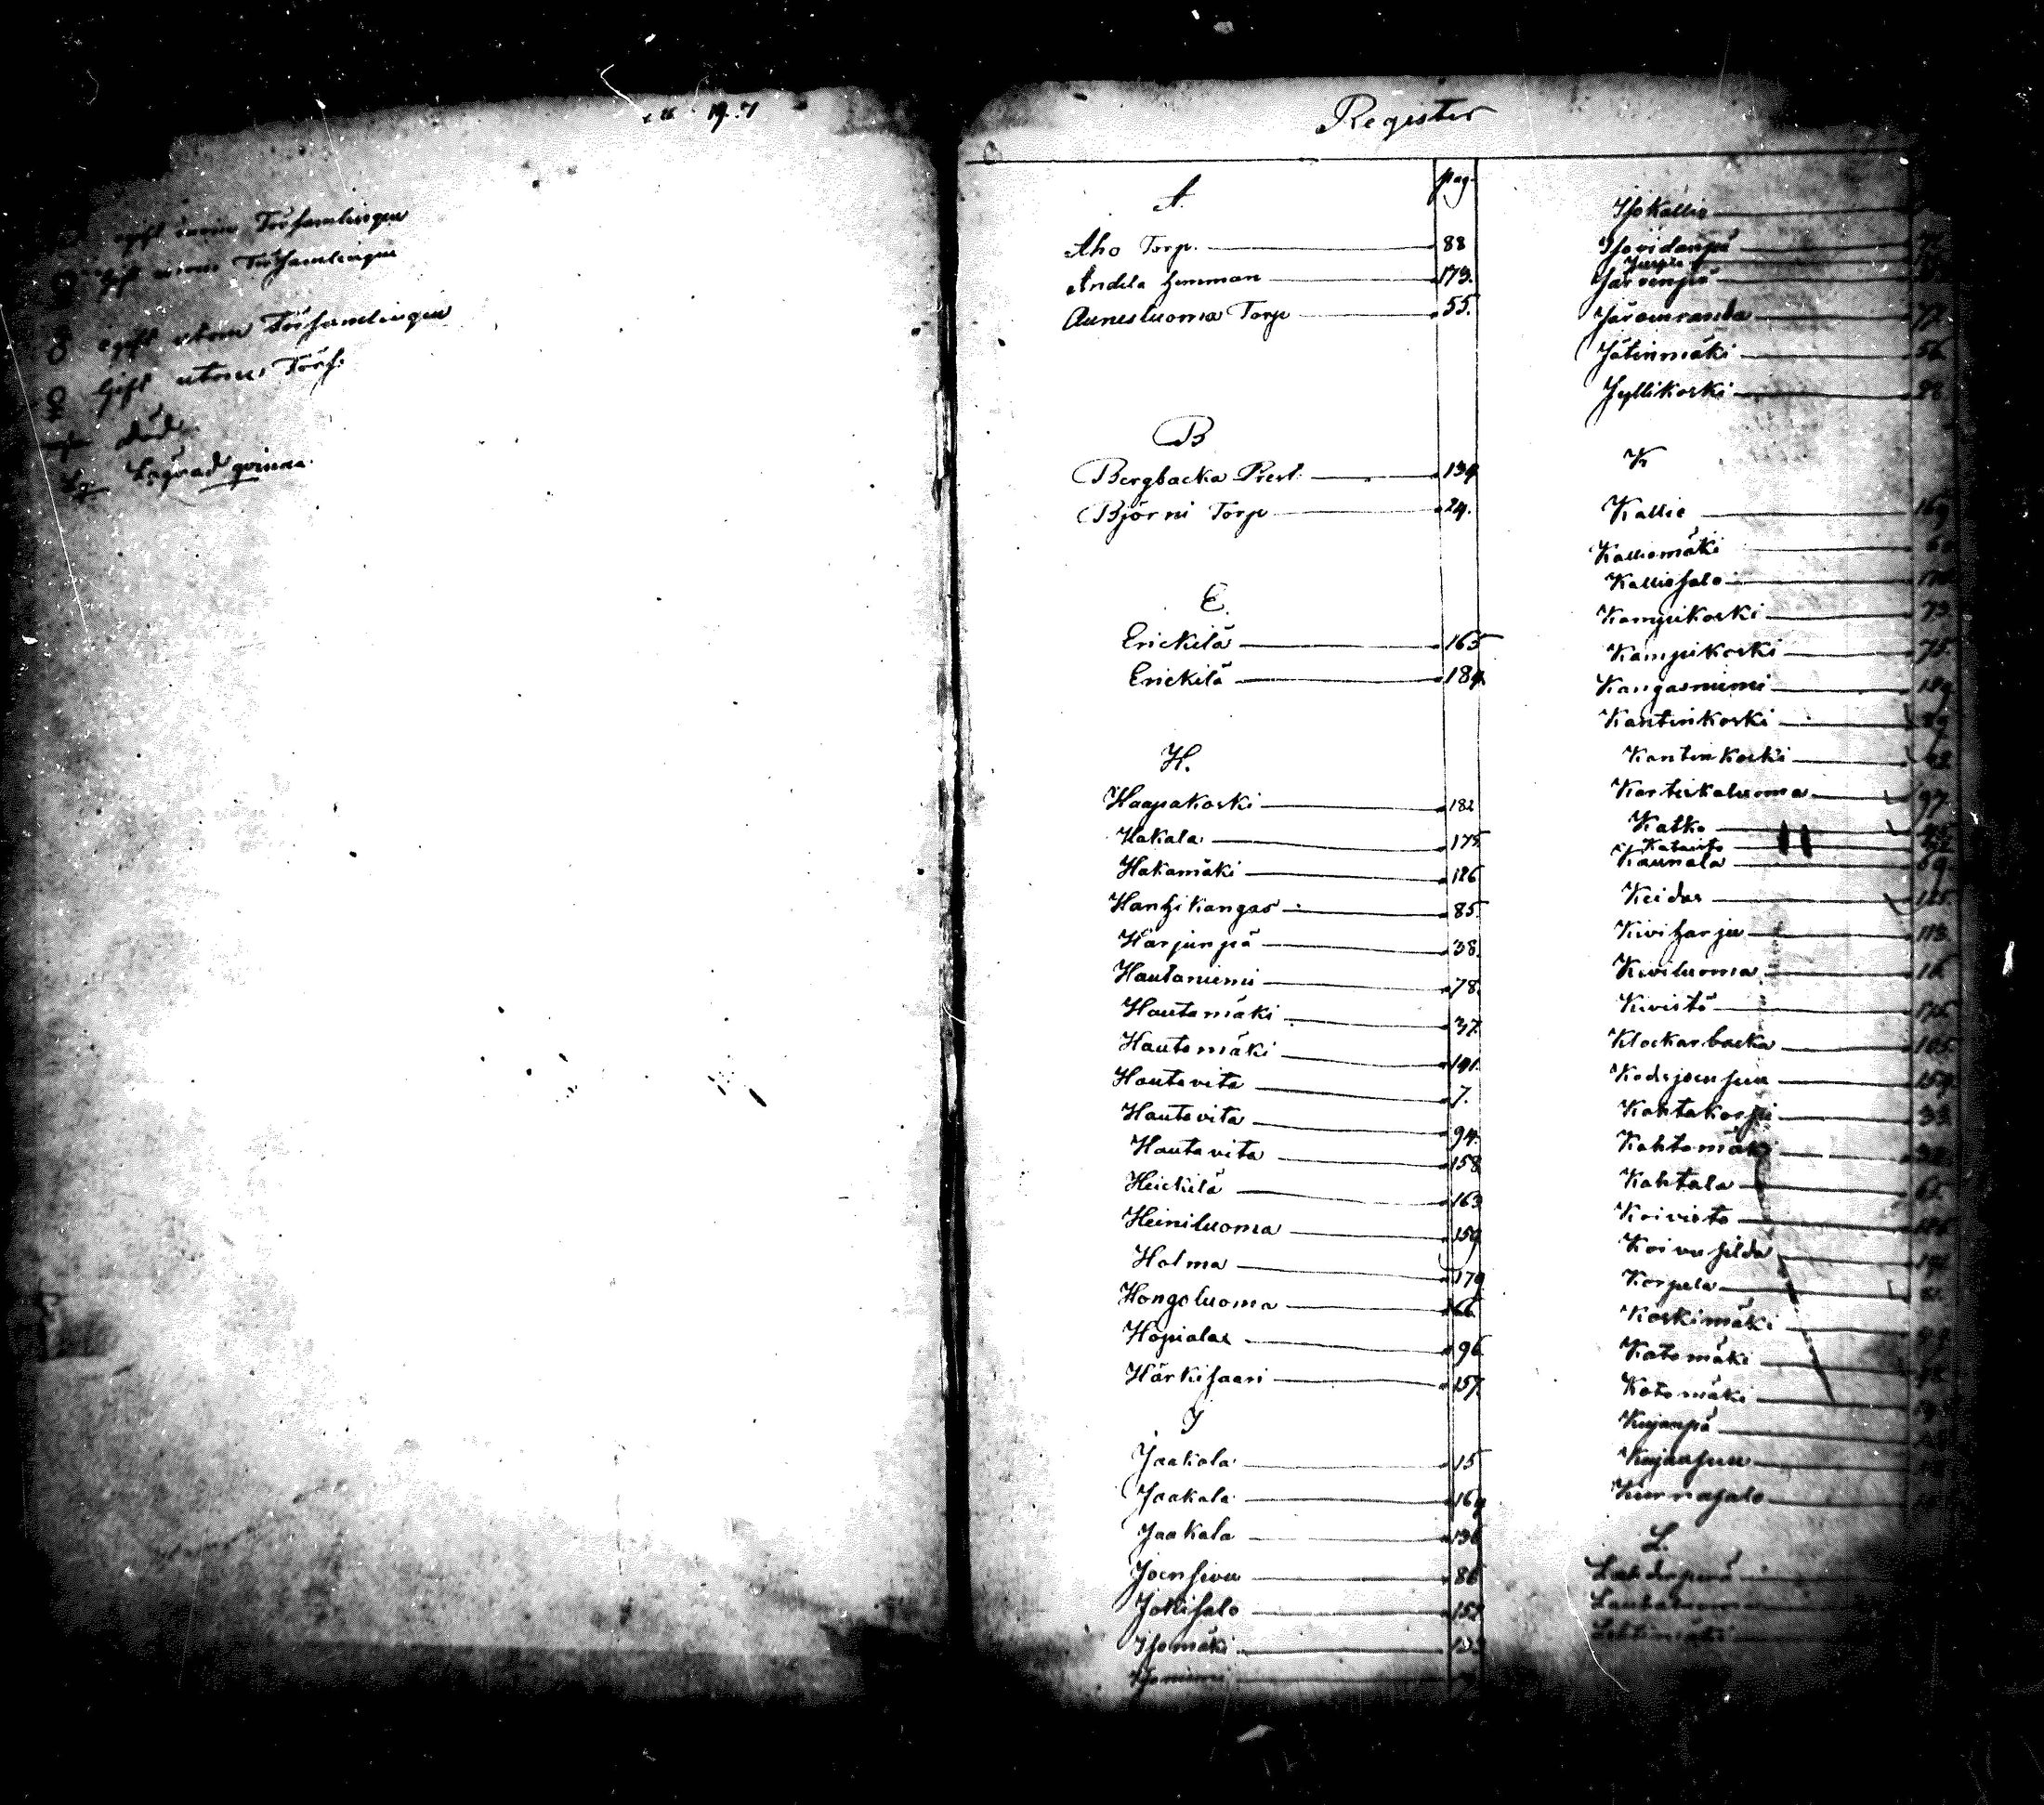 19.7
ogift inom Församlingen
Gift inom Församlingen
♂ ogift utom Församlingen
♀ Gift utom Förs.
död
Lg Lägrad qvinna.
Register
pag.
A.
Aho Torp. 88
Andila hemman 173.
Aunesluoma Torp 55.
B
Bergbacka Prest. 134
Björni Torp 24.
E.
Erickilä 165
Erickilä 184
H.
Haapakoski 182
Hakala 175
Hakamäki 186
Hanhikangas 85
Harjunpä 38.
Hautaniemi 78.
Hautamäki 37.
Hautamäki 191.
Hautavita 7.
Hautavita 94.
Hautavita 158
Heickilä 163
Heiniluoma 159
Holma 179
Hongoluoma 66
Hopialax 96
Härkisaari 157
J
Jaakola 15
Jaakala 169
Jaakala 196
Joensivu 86
Jokisalo 152
Isomäki
Isoniemi
Isokallio
Isovidanpä
Järvenpä
Järvinranda 72
Jätinmäki 56
Jyllikoski 28.
K
Kallio 169
Kalliomäki
Kalliosalo
Kampikoski 73
Kampikoski 75
Kangasniemi 189
Kantinkoski 89
Kantinkoski 92
Kartiskaluoma 97
Katko
Katavisto
Kaunola 69
Keidas 125
Kiviharju 113
Kiviluoma 16
Kivistö
Klockarbacka 105
Kodejoensuu 159
Kohtakorpi 33
Kohtamäki
Kohtala
Koivisto
Koivusilda
Korpela
Koskimäki
Kotomäki
Kotomäki
Kujanpä
Kujansuu
Kurnasalo
L.
Lahdenperä
Lauhaluoma
Lehtimäki